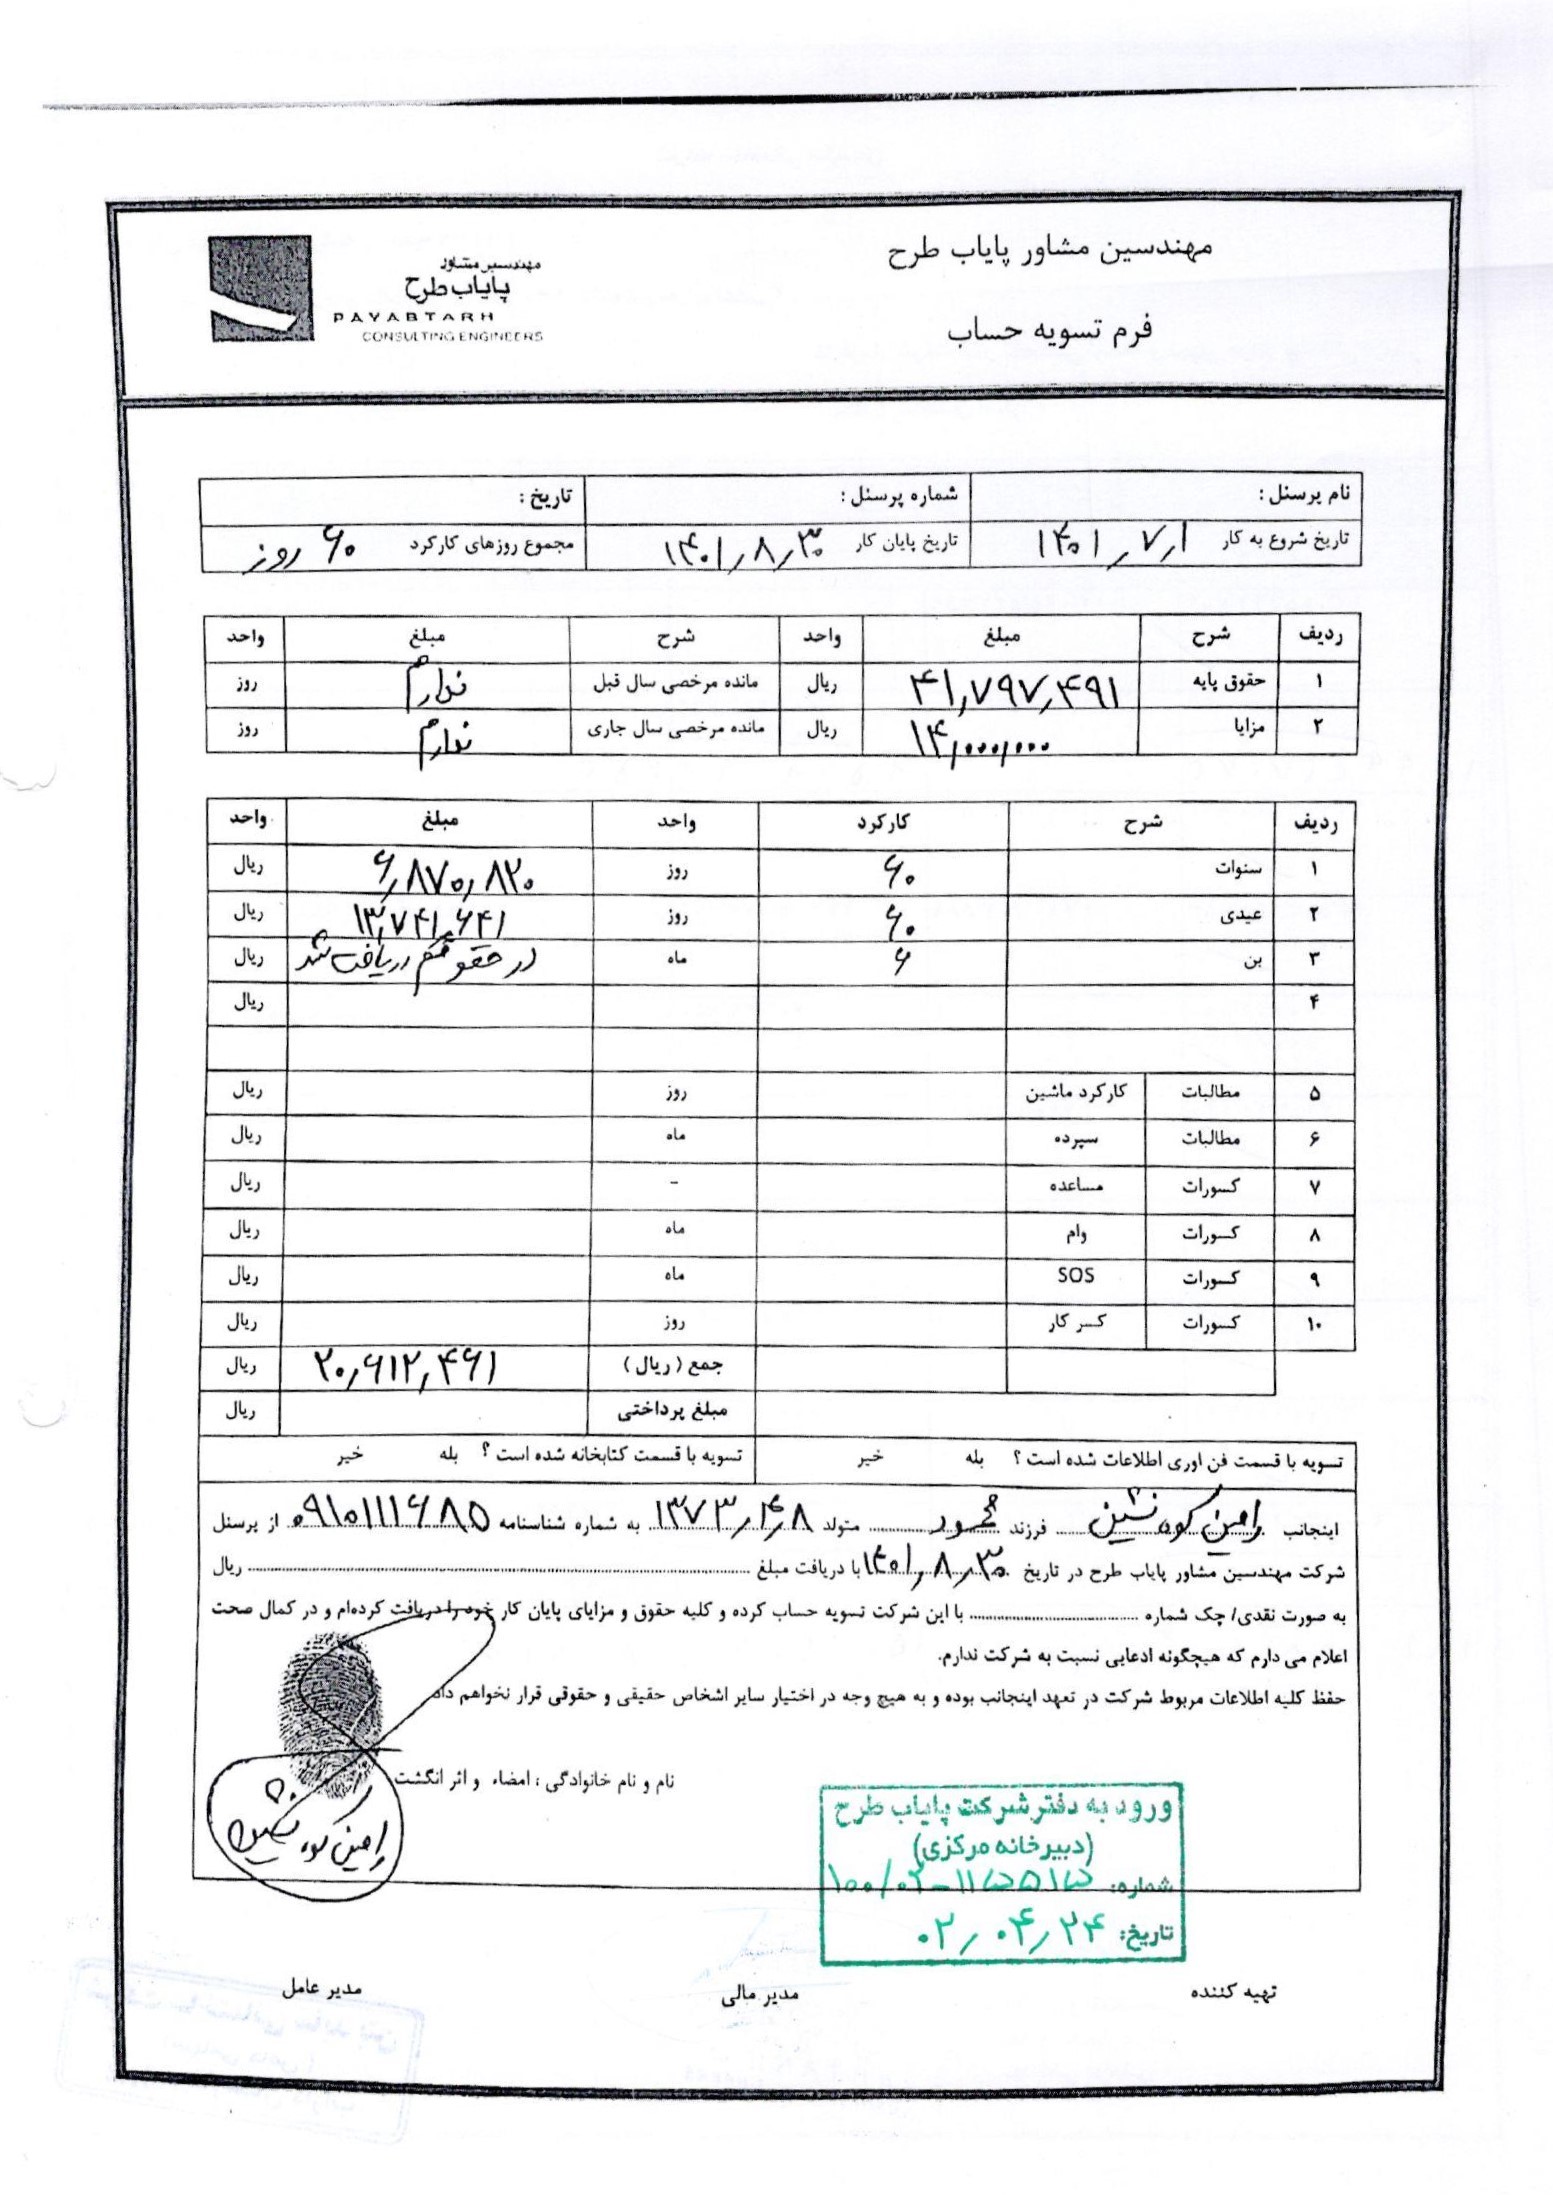 مهندسین مشاور پایاب طرح
فرم تسویه حساب
مهندسین مشاور
پایاب طرح
PAYABTARH
CONSULTING ENGINEERS
نام پرسنل : شماره پرسنل : تاریخ :
تاریخ شروع به کار ۱۴۰۱٫۷٫۱ تاریخ پایان کار ۱۴۰۱٫۸٫۳۰ مجموع روزهای کارکرد ۶۰ روز
ردیف شرح مبلغ واحد شرح مبلغ واحد
۱ حقوق پایه ۴۱٫۷۹۷٫۴۹۱ ریال مانده مرخصی سال قبل ندارم روز
۲ مزایا ۱۴٫۰۰۰٫۰۰۰ ریال مانده مرخصی سال جاری ندارم روز
ردیف شرح کارکرد واحد مبلغ واحد
۱ سنوات ۶۰ روز ۶٫۸۷۰٫۸۲۰ ریال
۲ عیدی ۶۰ روز ۱۳٫۷۴۱٫۶۴۱ ریال
۳ بن ۶ ماه در حقوقم دریافت شد ریال
۴ ریال
۵ مطالبات کارکرد ماشین روز ریال
۶ مطالبات سپرده ماه ریال
۷ کسورات مساعده - ریال
۸ کسورات وام ماه ریال
۹ کسورات SOS ماه ریال
۱۰ کسورات کسر کار روز ریال
جمع (ریال) ۲۰٫۶۱۲٫۴۶۱ ریال
مبلغ پرداختی ریال
تسویه با قسمت فن اوری اطلاعات شده است ؟ بله خیر تسویه با قسمت کتابخانه شده است ؟ بله خیر
اینجانب رامین کوه نشین فرزند محمود متولد ۱۳۷۳٫۴٫۸ به شماره شناسنامه ۰۹۱۰۱۱۱۶۸۵ از پرسنل
شرکت مهندسین مشاور پایاب طرح در تاریخ ۱۴۰۱٫۸٫۳۰ با دریافت مبلغ ........ ریال
به صورت نقدی/ چک شماره ........ با این شرکت تسویه حساب کرده و کلیه حقوق و مزایای پایان کار خود را دریافت کرده‌ام و در کمال صحت
اعلام می دارم که هیچگونه ادعایی نسبت به شرکت ندارم.
حفظ کلیه اطلاعات مربوط شرکت در تعهد اینجانب بوده و به هیچ وجه در اختیار سایر اشخاص حقیقی و حقوقی قرار نخواهم داد.
نام و نام خانوادگی : امضاء و اثر انگشت
رامین کوه نشین
ورود به دفتر شرکت پایاب طرح
(دبیرخانه مرکزی)
شماره:
تاریخ: ۰۲٫۰۴٫۲۴
تهیه کننده مدیر مالی مدیر عامل